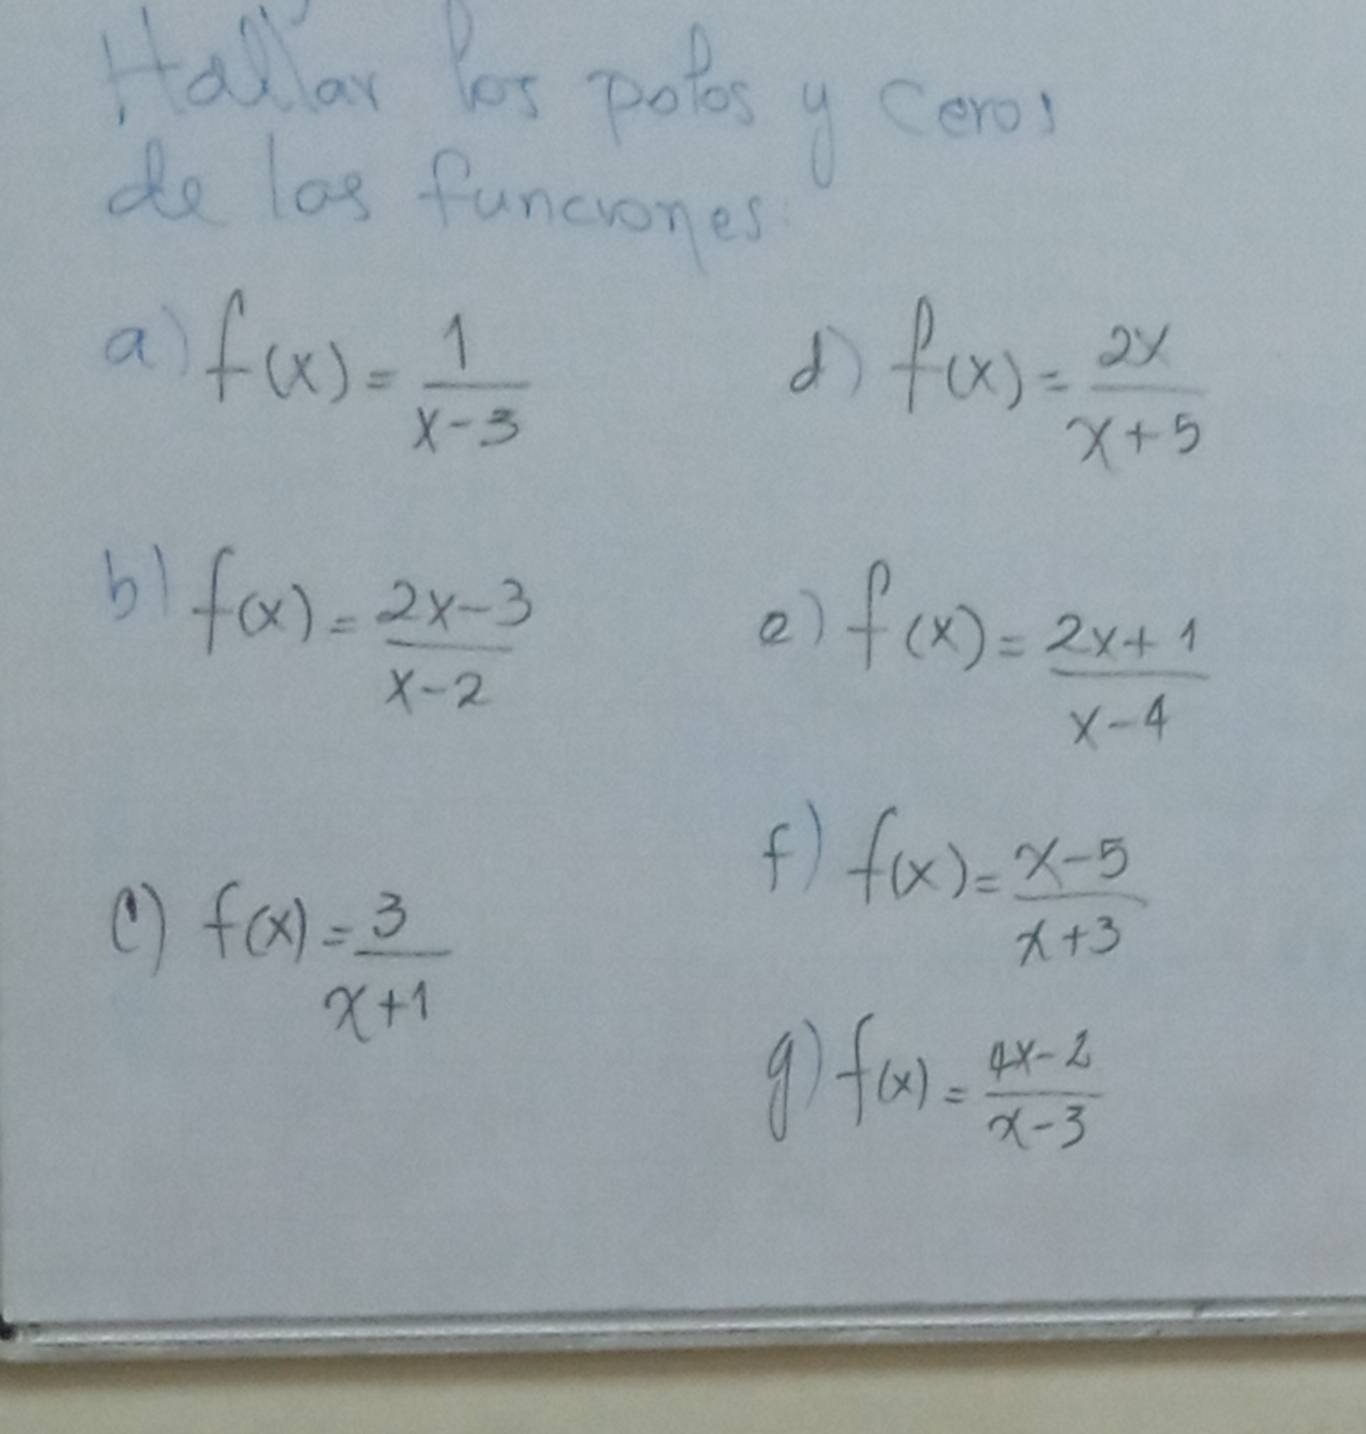 Hallar los polos y ceros
de las funciones:
a) f(x) = 1/(x-3)
b) f(x) = (2x-3)/(x-2)
c) f(x) = 3/(x+1)
d) f(x) = 2x/(x+5)
e) f(x) = (2x+1)/(x-4)
f) f(x) = (x-5)/(x+3)
g) f(x) = (4x-2)/(x-3)